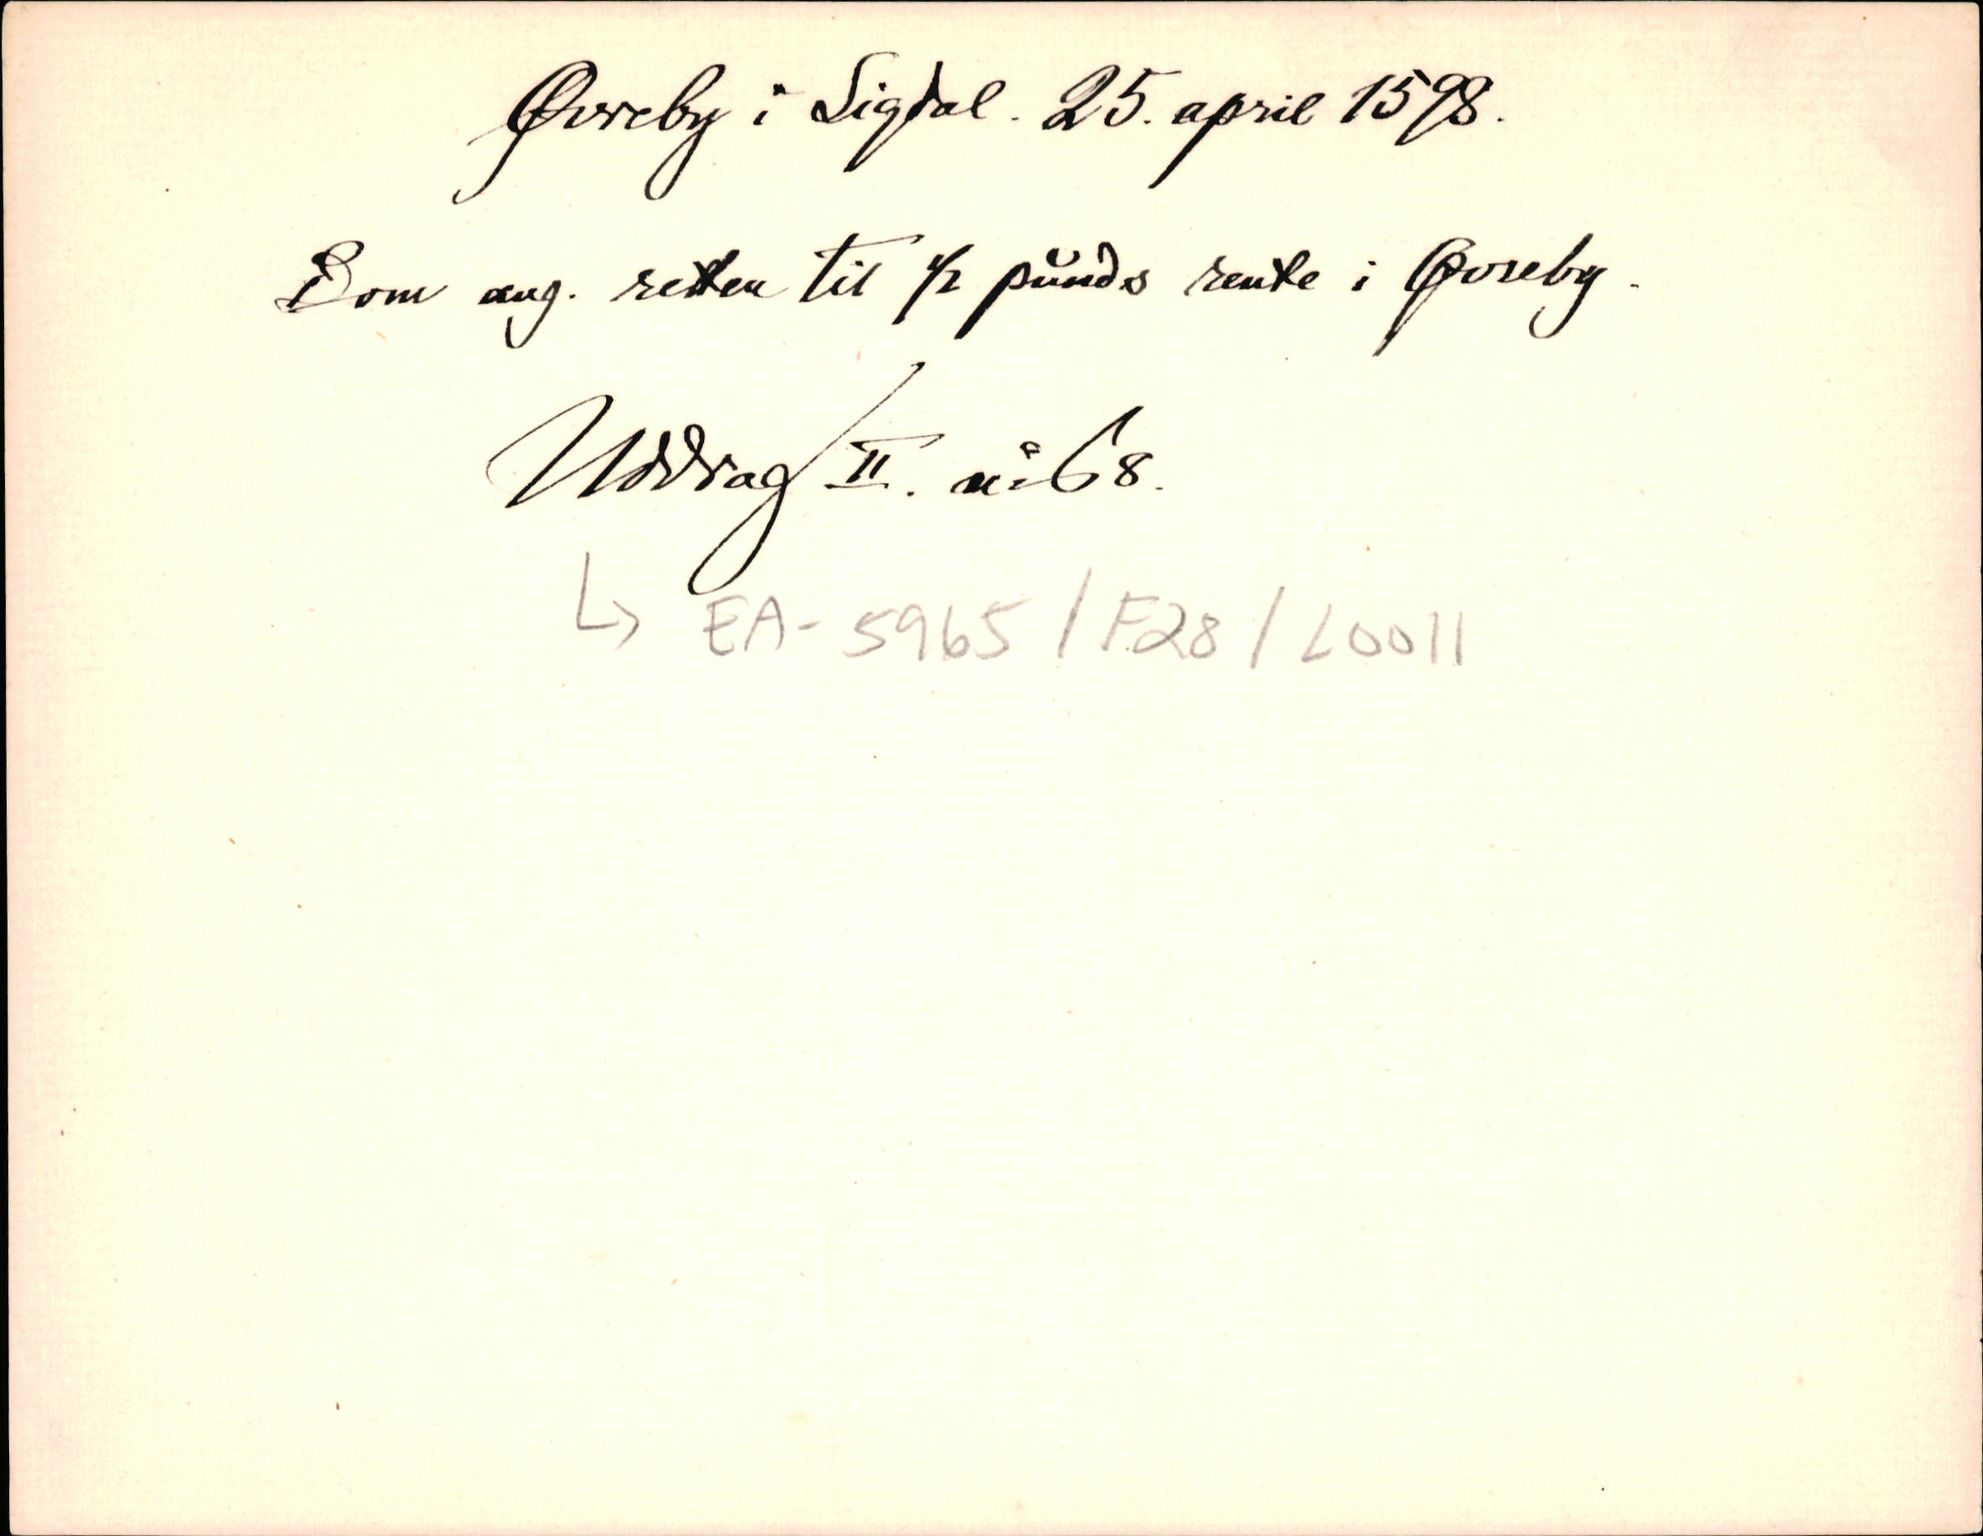 Øvreby i Sigdal. 25. april 1598.
Dom ang. retten til 1/2 punds rente i Øvreby.
Uddrag II. no 68.
↳ EA-5965/F28/L0011